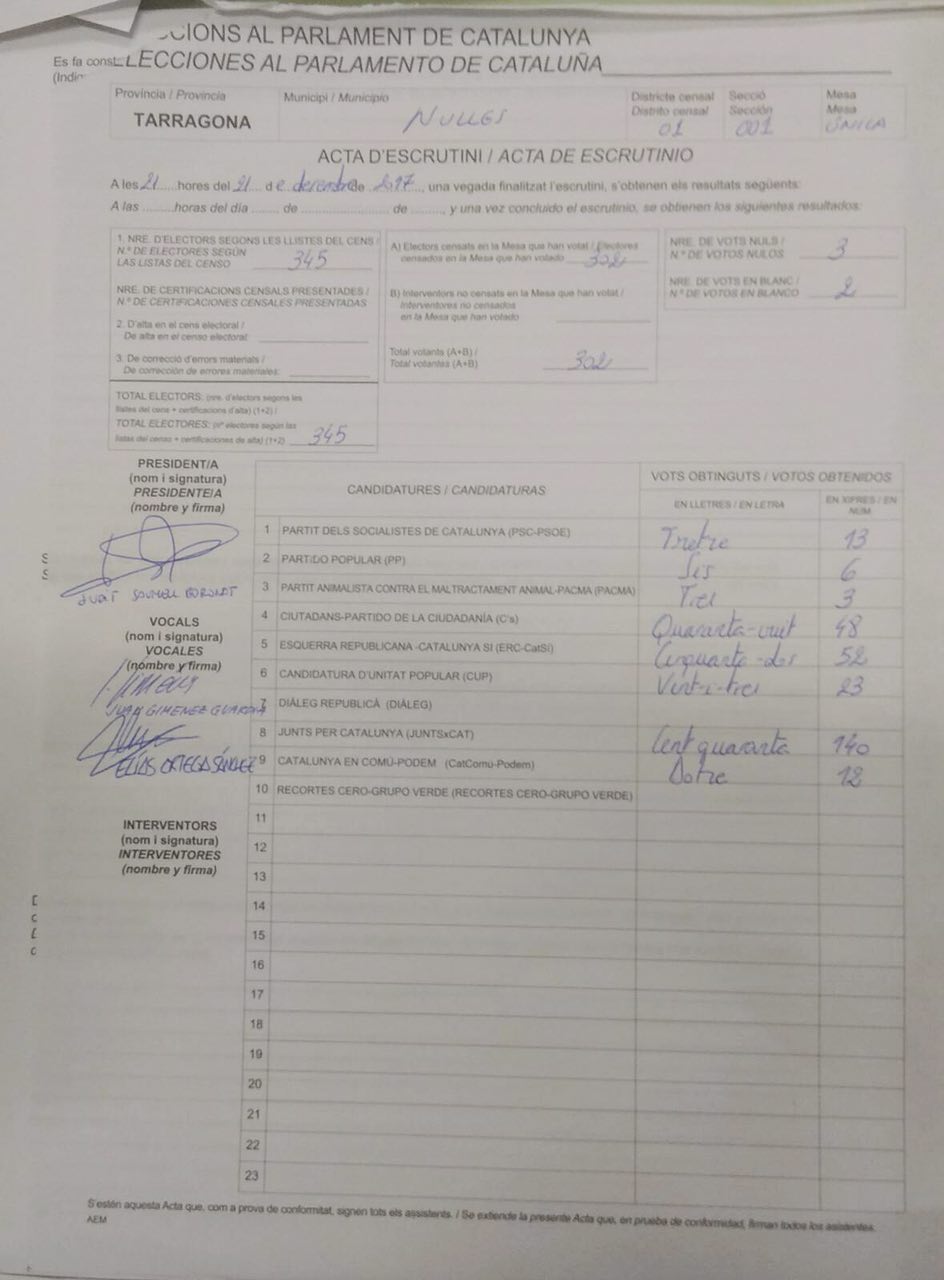 CIONS AL PARLAMENT DE CATALUNYA
Es fa const
LECCIONES AL PARLAMENTO DE CATALUÑA
(Indi
Província / Provincia
TARRAGONA
Municipi / Municipio
NULLES
Districte censal
Distrito censal
01
Secció
Sección
001
Mesa
Mesa
ÚNICA
ACTA D'ESCRUTINI / ACTA DE ESCRUTINIO
A les 21 hores del 21 de desembre de 2017, una vegada finalitzat l'escrutini, s'obtenen els resultats següents:
A las ......... horas del día ........ de ........................ de ........, y una vez concluido el escrutinio, se obtienen los siguientes resultados:
1. NRE. D'ELECTORS SEGONS LES LLISTES DEL CENS /
N.º DE ELECTORES SEGÚN
LAS LISTAS DEL CENSO 345
NRE. DE CERTIFICACIONS CENSALS PRESENTADES /
N.º DE CERTIFICACIONES CENSALES PRESENTADAS
2. D'alta en el cens electoral /
De alta en el censo electoral:
3. De correcció d'errors materials /
De corrección de errores materiales:
TOTAL ELECTORS: (nre. d'electors segons les
llistes del cens + certificacions d'alta) (1+2) /
TOTAL ELECTORES: (nº electores según las
listas del censo + certificaciones de alta) (1+2) 345
A) Electors censats en la Mesa que han votat / Electores
censados en la Mesa que han votado 302
B) Interventors no censats en la Mesa que han votat /
Interventores no censados
en la Mesa que han votado
Total votants (A+B) /
Total votantes (A+B) 302
NRE. DE VOTS NULS /
N.º DE VOTOS NULOS 3
NRE. DE VOTS EN BLANC /
N.º DE VOTOS EN BLANCO 2
PRESIDENT/A
(nom i signatura)
PRESIDENTE/A
(nombre y firma)
VOCALS
(nom i signatura)
VOCALES
(nombre y firma)
JUAN GIMENEZ GUARDIA
ELÍAS ORTEGA SÁNCHEZ
INTERVENTORS
(nom i signatura)
INTERVENTORES
(nombre y firma)
CANDIDATURES / CANDIDATURAS
VOTS OBTINGUTS / VOTOS OBTENIDOS
EN LLETRES / EN LETRA
EN XIFRES / EN NUM
1 PARTIT DELS SOCIALISTES DE CATALUNYA (PSC-PSOE) Tretze 13
2 PARTIDO POPULAR (PP) Sis 6
3 PARTIT ANIMALISTA CONTRA EL MALTRACTAMENT ANIMAL-PACMA (PACMA) Tres 3
4 CIUTADANS-PARTIDO DE LA CIUDADANÍA (C's) Quaranta-vuit 48
5 ESQUERRA REPUBLICANA -CATALUNYA SI (ERC-CatSí) Cinquanta-dos 52
6 CANDIDATURA D'UNITAT POPULAR (CUP) Vint-i-tres 23
7 DIÀLEG REPUBLICÀ (DIÀLEG)
8 JUNTS PER CATALUNYA (JUNTSxCAT) Cent quaranta 140
9 CATALUNYA EN COMÚ-PODEM (CatComú-Podem) Dotze 12
10 RECORTES CERO-GRUPO VERDE (RECORTES CERO-GRUPO VERDE)
11
12
13
14
15
16
17
18
19
20
21
22
23
S'estén aquesta Acta que, com a prova de conformitat, signen tots els assistents. / Se extiende la presente Acta que, en prueba de conformidad, firman todos los asistentes.
AEM